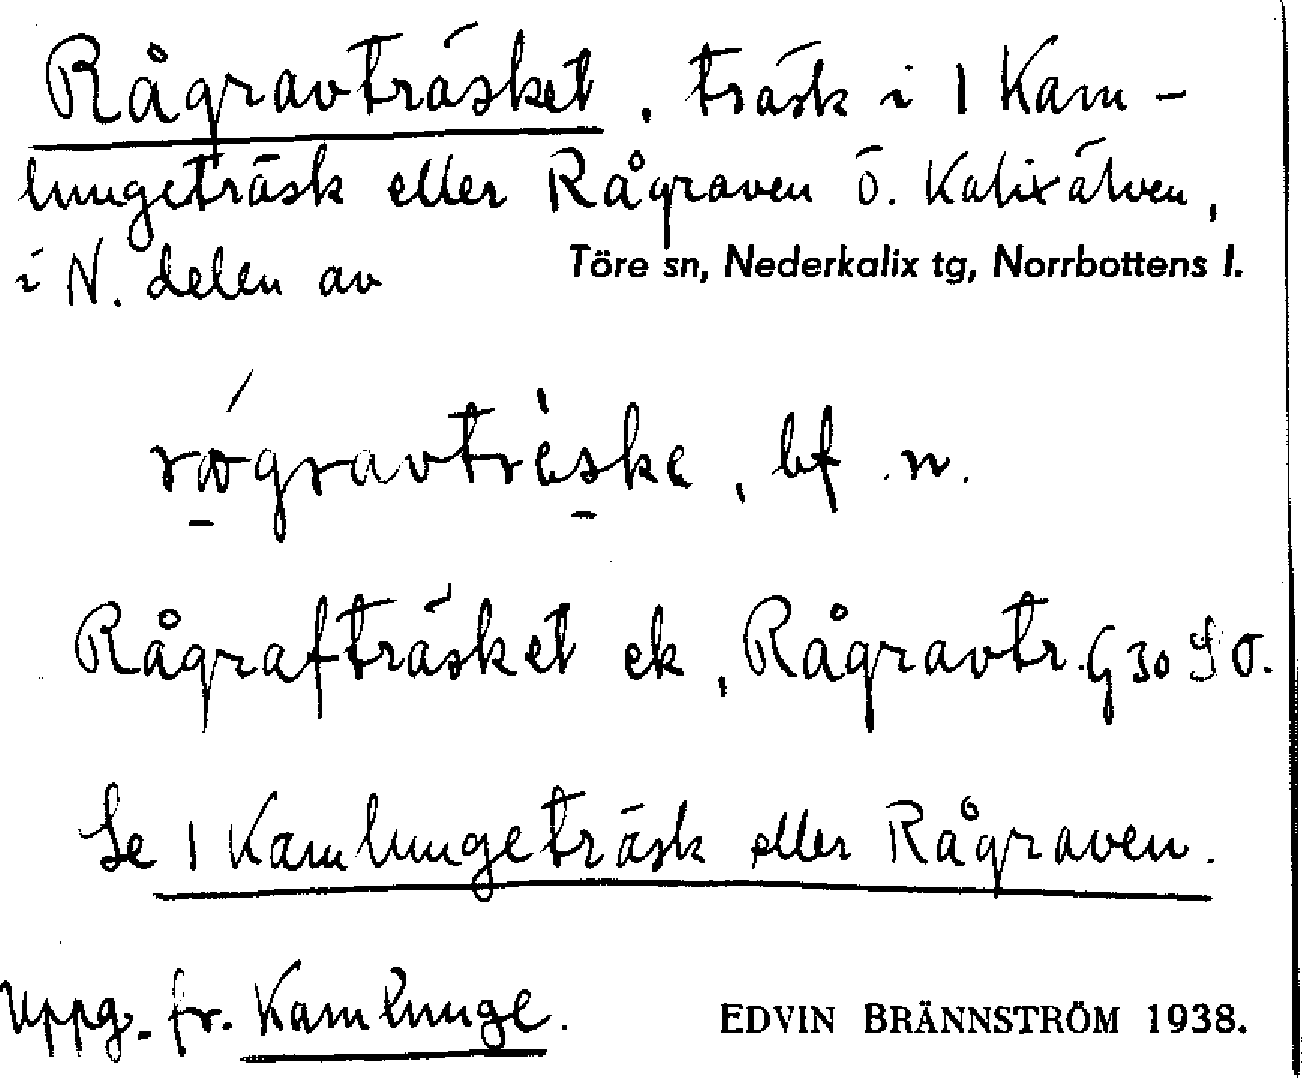 Rågravträsket, träsk i 1 Kam-
lungeträsk eller Rågraven ö. Kalixälven,
i N. delen av Töre sn, Nederkalix tg, Norrbottens l.
rògravtrèske, bf. n.
Rågrafträsket ek, Rågravtr. G 30 SO.
Se 1 Kamlungeträsk eller Rågraven.
Uppg. fr. Kamlunge. EDVIN BRÄNNSTRÖM 1938.